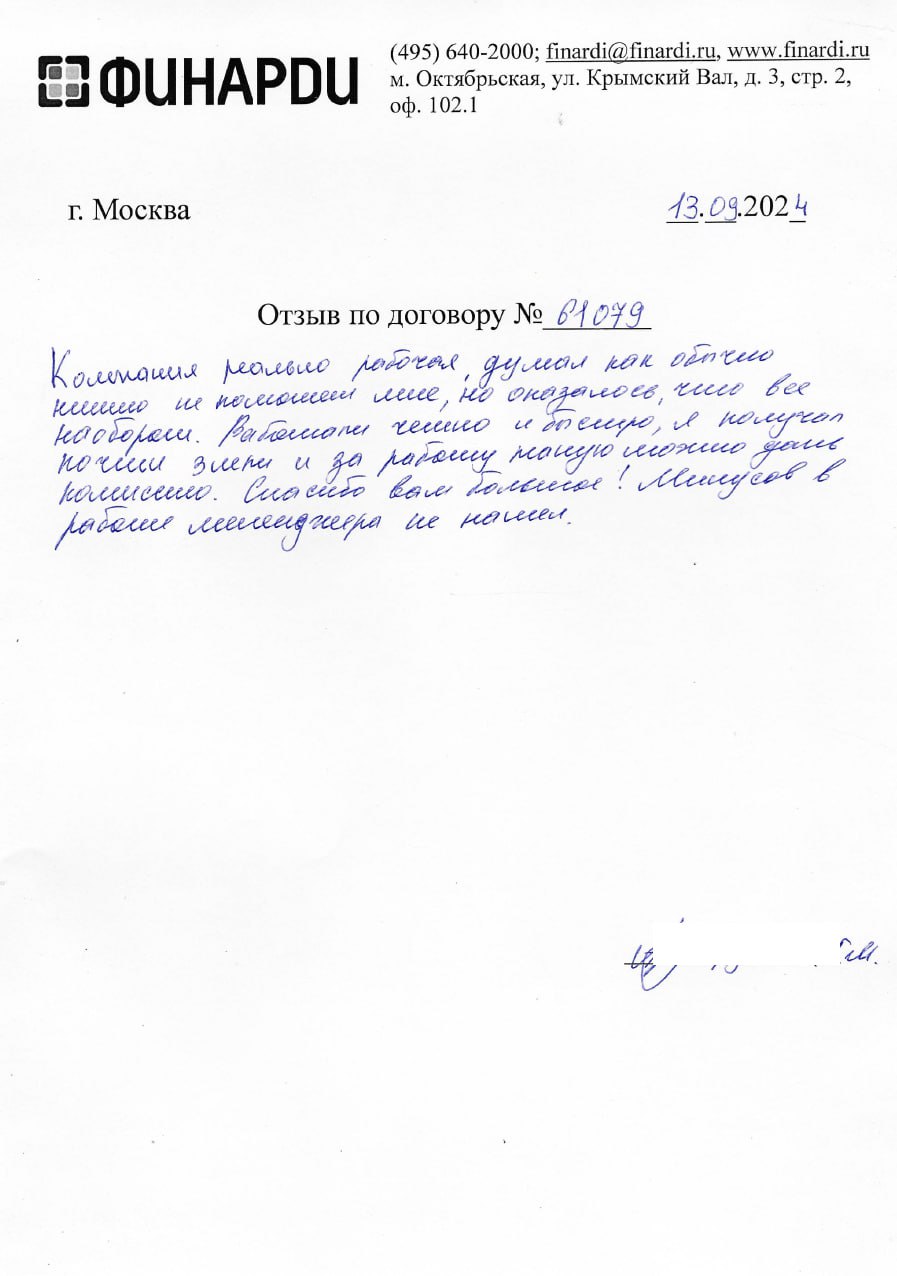 ФИНАРДИ
(495) 640-2000; finardi@finardi.ru, www.finardi.ru
м. Октябрьская, ул. Крымский Вал, д. 3, стр. 2,
оф. 102.1
г. Москва
13.09.2024
Отзыв по договору № 61079
Компания реально рабочая, думал как обычно
никто не поможет мне, но оказалось, что все
наоборот. Работали четко и быстро, я получал
почти 3 млн и за работу такую можно дать
комиссию. Спасибо вам большое! Минусов в
работе менеджера не нашел.